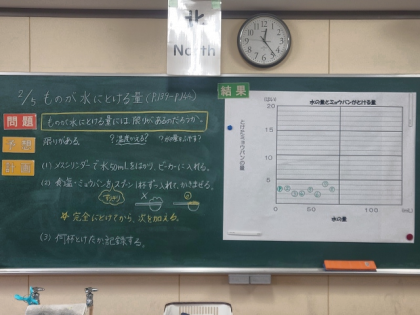 北
North
結果
2/5 ものが水にとける量 (P.159~P.164)
問題 ものが水にとける量には、限りがあるのだろうか。
予想 限りがある。 ?温度かえる? ?水の量をふやす?
計画 (1) メスシリンダーで水50mLをはかり、ビーカーに入れる。
(2) 食塩・ミョウバンをスプーン1ぱいずつ入れて、かきまぜる。
すりきり
☆完全にとけてから、次を加える。
(3) 何杯とけたか記録する。
水の量とミョウバンがとける量
とけたミョウバンの量
20
15
10
5
0 50 100 (mL)
水の量